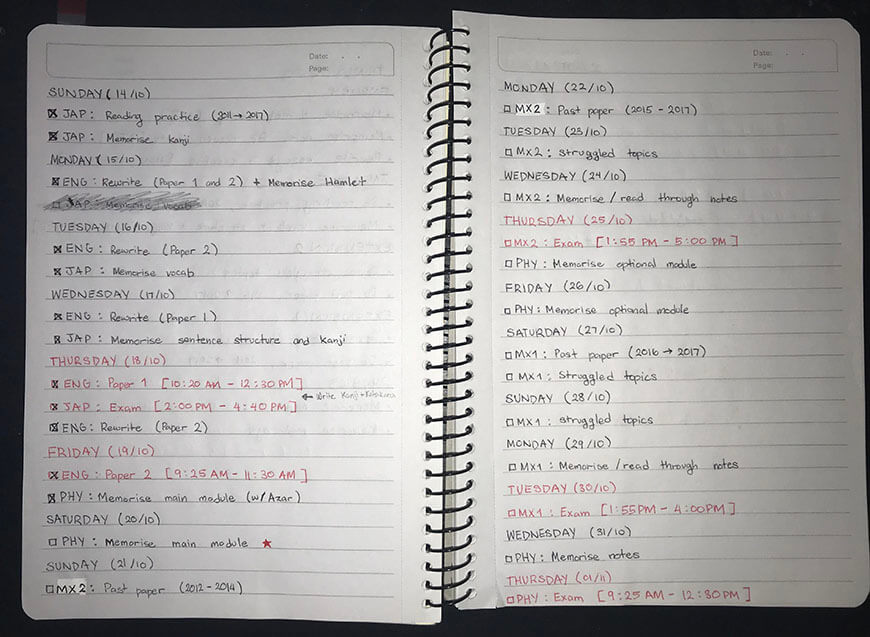 Date: . .
Page:
SUNDAY (14/10)
☒ JAP: Reading practice (2011→2017)
☒ JAP: Memorise kanji
MONDAY (15/10)
☒ ENG: Rewrite (Paper 1 and 2) + Memorise Hamlet
☐ JAP: Memorise vocab
TUESDAY (16/10)
☒ ENG: Rewrite (Paper 2)
☒ JAP: Memorise vocab
WEDNESDAY (17/10)
☒ ENG: Rewrite (Paper 1)
☒ JAP: Memorise sentence structure and kanji
THURSDAY (18/10)
☒ ENG: Paper 1 [10:20 AM - 12:30 PM]
☒ JAP: Exam [2:00 PM - 4:40 PM] ← Write Kanji + Katakana
☒ ENG: Rewrite (Paper 2)
FRIDAY (19/10)
☒ ENG: Paper 2 [9:25 AM - 11:30 AM]
☒ PHY: Memorise main module (w/ Azar)
SATURDAY (20/10)
☐ PHY: Memorise main module ★
SUNDAY (21/10)
☐ MX2: Past paper (2012-2014)
Date: . .
Page:
MONDAY (22/10)
☐ MX2: Past paper (2015-2017)
TUESDAY (23/10)
☐ MX2: Struggled topics
WEDNESDAY (24/10)
☐ MX2: Memorise / read through notes
THURSDAY (25/10)
☐ MX2: Exam [1:55 PM - 5:00 PM]
☐ PHY: Memorise optional module
FRIDAY (26/10)
☐ PHY: Memorise optional module
SATURDAY (27/10)
☐ MX1: Past paper (2016→2017)
☐ MX1: Struggled topics
SUNDAY (28/10)
☐ MX1: struggled topics
MONDAY (29/10)
☐ MX1: Memorise / read through notes
TUESDAY (30/10)
☐ MX1: Exam [1:55PM - 4:00PM]
WEDNESDAY (31/10)
☐ PHY: Memorise notes
THURSDAY (01/11)
☐ PHY: Exam [9:25 AM - 12:30 PM]